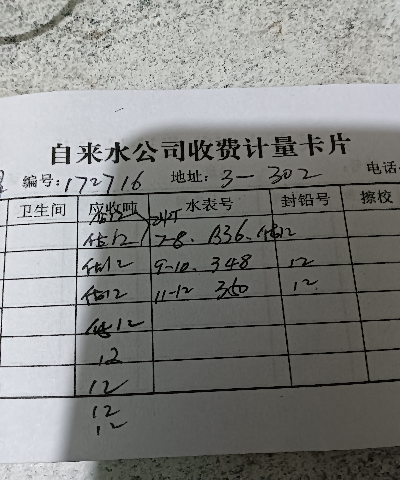 自来水公司收费计量卡片
编号:172716 地址:3-302 电话
卫生间 应收吨 水表号 封铅号 擦校
12
12 7-8. 336. 12
12 9-10. 348 12
12 11-12 360 12
12
12
12
12
12